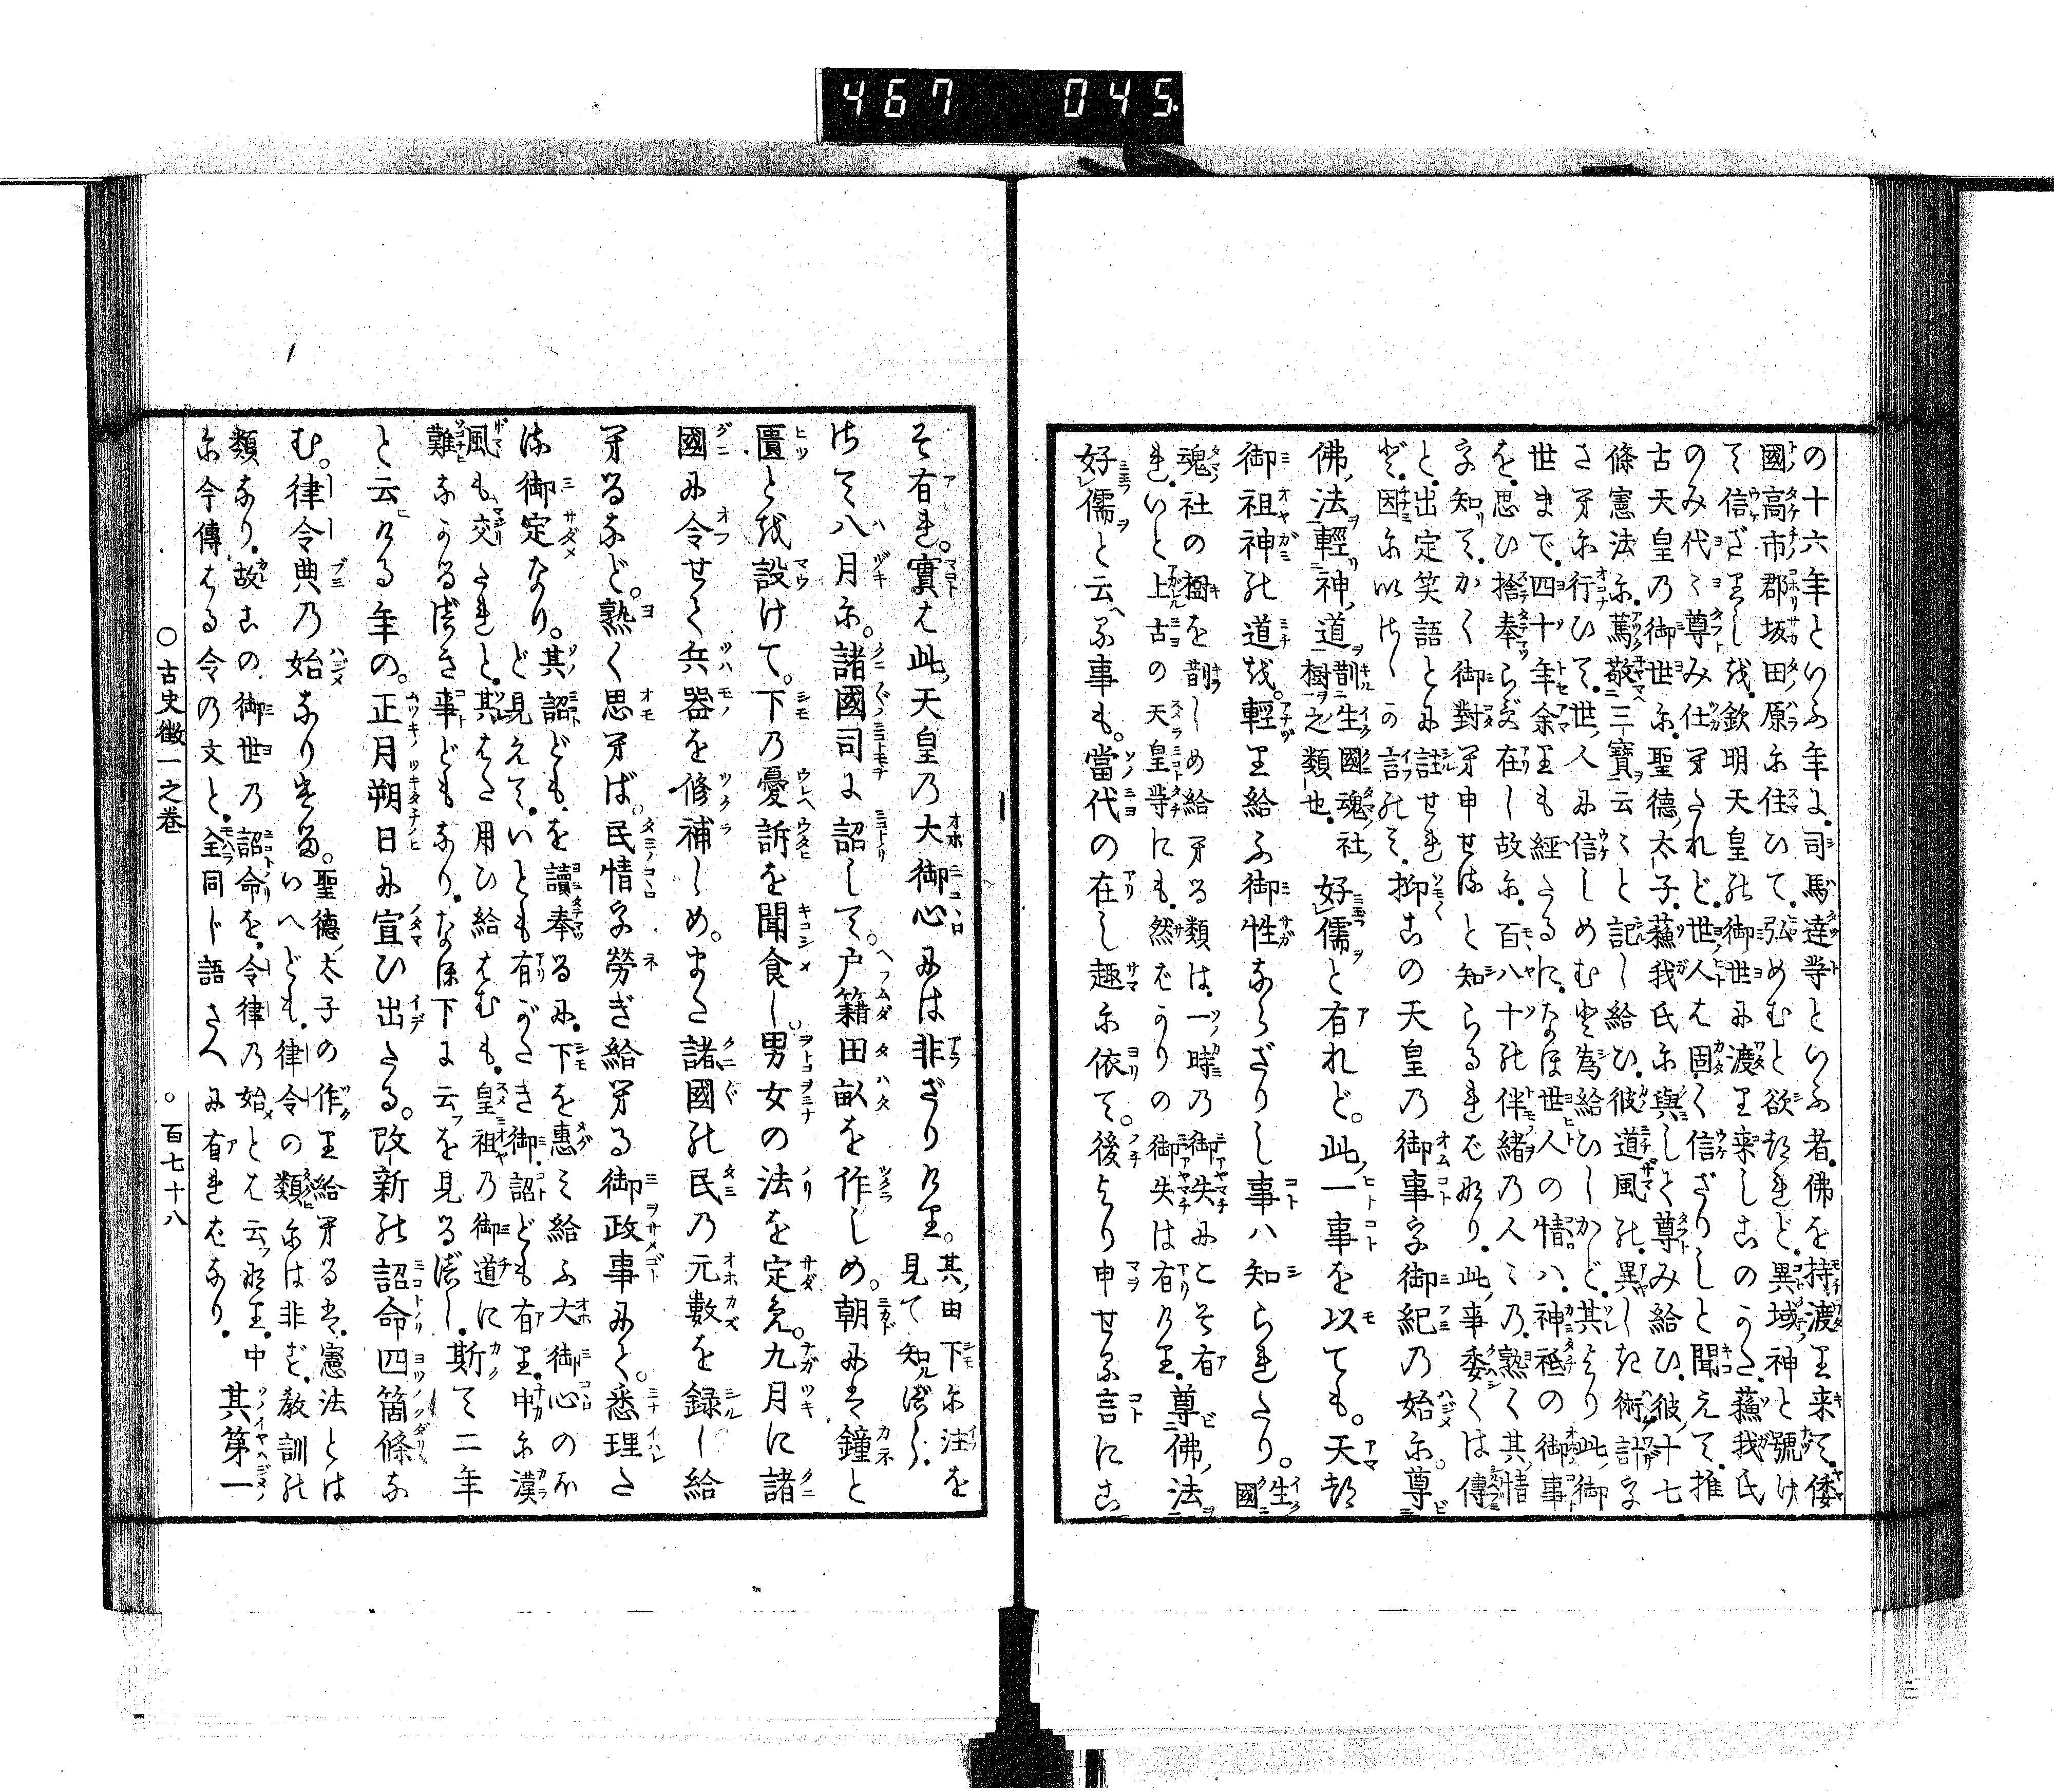 467 045.
の十六年といふ年に。司馬達等といふ者。佛を持渡り来て。倭
國高市郡坂田原に住ひて。弘めむと欲れど。異域神と號け
て信ざりしを。欽明天皇の御世に渡り来しこのかた。蘇我氏
のみ代々尊み仕へたれど。世人は固く信ざりしと聞えて。推
古天皇の御世に。聖德太子。蘇我氏に與して尊み給ひ。彼十七
條憲法に。篤敬三寶云々と記し給ひ。彼道風の。異しき術計を
さへに行ひて。世人に信しめむと為給ひしかど。其より此御
世まで。四十年余りも經たるに。なほ世人の情ハ。神祇の御事
を。思ひ捨奉らず在し故に。百八十の伴緒の人々の。熟く其情
を知りて。かく御對へ申せると知らるればなり。此事委くは傳
と。出定笑語とに註せれ
ど。因に以はゝか言のみ。抑この天皇の御事を御紀の始に。尊
佛法輕神道 斮生國魂社樹之類也。 好儒と有れど。此一事を以ても。天都
御祖神の道を。輕り給ふ御性ならざりし事ハ知られたり。生國
魂社の樹を斮しめ給へる類は。一時の御失にこそ有
れ。いと上古の天皇等にも。然ばかりの御失は有けり。尊佛法
好儒と云へる事も。當代の在し趣に依て。後より申せる言にこ
そ有れ。實は此天皇の大御心には非ざりけり。其由下に注を見て知べし。
はて八月に。諸國司に詔して。戸籍田畝を作しめ。朝には鐘と
匱とを設けて。下の憂訴を聞食し。男女の法を定め。九月に諸
國に令せて兵器を修補しめ。また諸國の民の元數を録し給
へるなど。熟く思へば。民情を勞ぎ給へる御政事にて。悉理た
る御定なり。其詔どもを讀奉るに。下を惠み給ふ大御心のほ
ど見えて。いとも有がたき御詔ども有り。中に漢
風も交たれど。其はた用ひ給はむも。皇祖の御道にカク
難なかるべき事どもなり。なほ下に云を見るべし。斯て二年
と云ける年の。正月朔日に宣ひ出たる。改新の詔命四箇條な
む。律令典の始なりける。聖德太子の作り給へるは。憲法とは
いへども。律令の類には非ず。教訓の
類なり。故この御世の詔命を。令律の始とは云なり。中其第一
に今傳はる令の文と。全同じ語さへに有ればなり。
○古史徴一之巻 ○百七十八